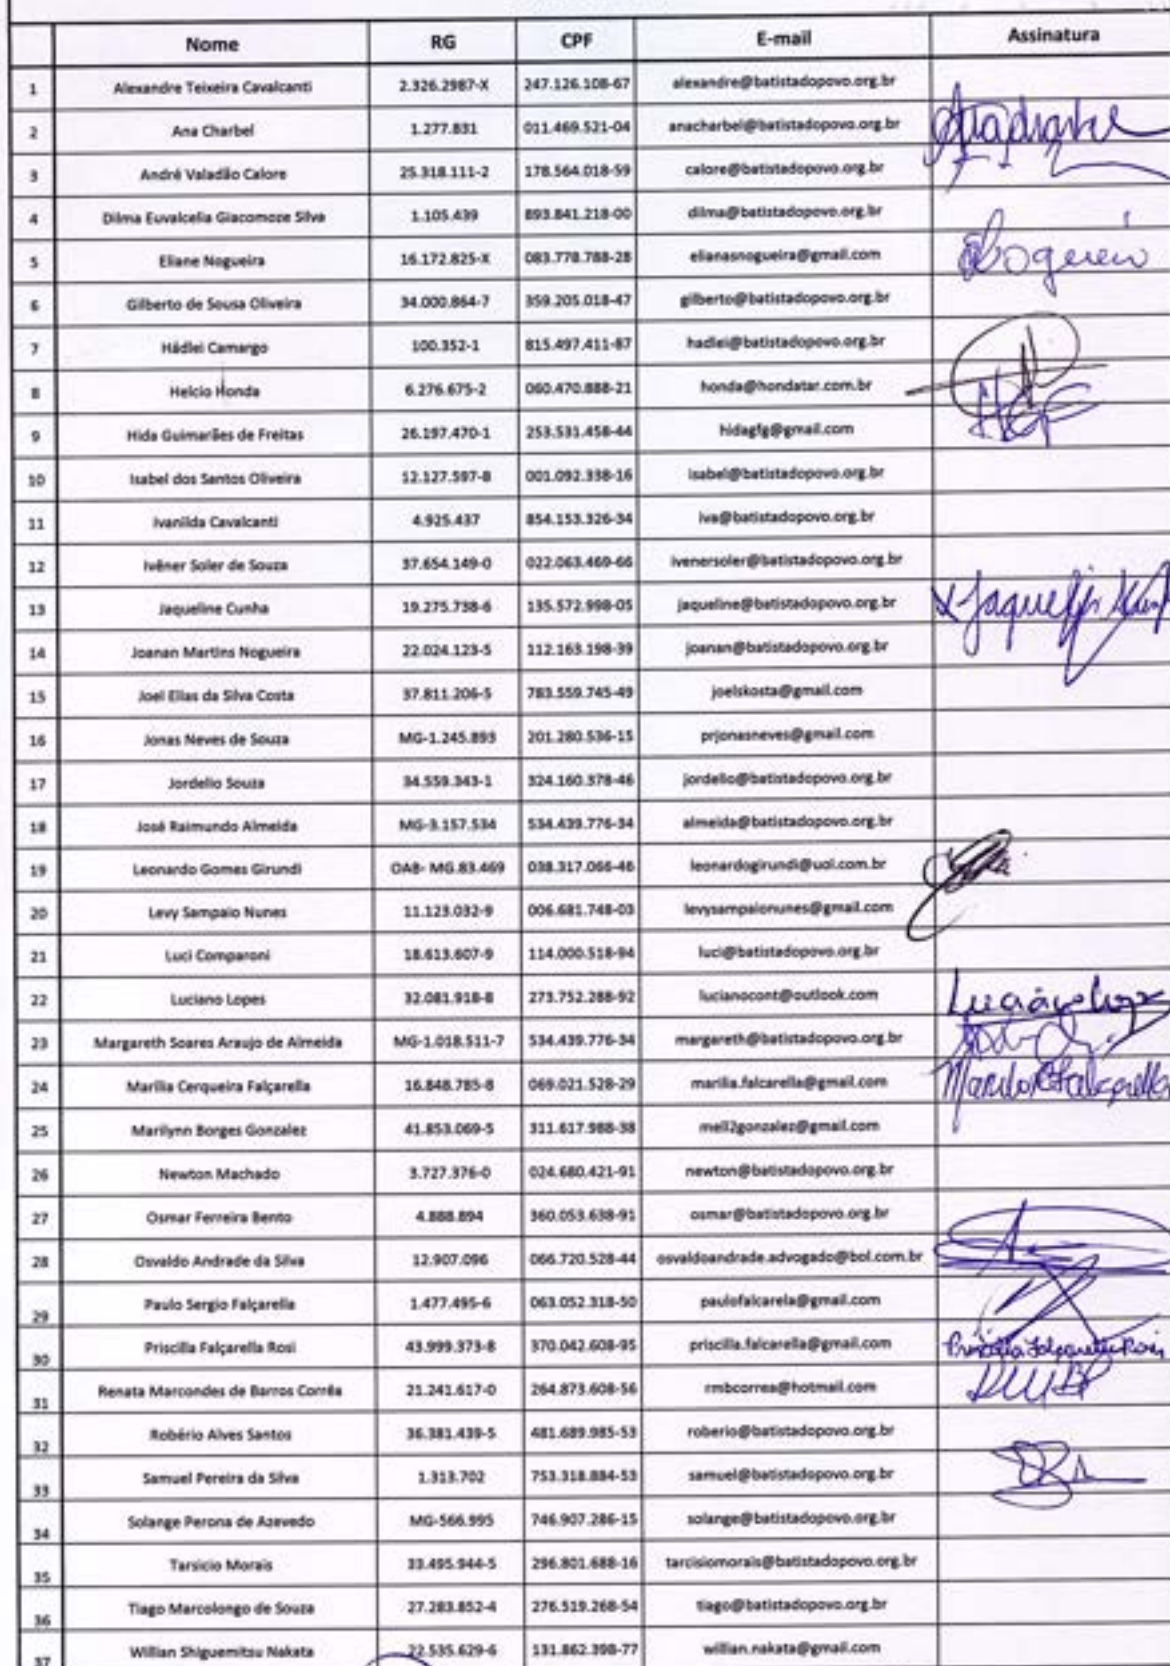 Nome RG CPF E-mail Assinatura
1 Alexandre Teixeira Cavalcanti 2.326.2987-X 247.126.108-67 alexandre@batistadopovo.org.br
2 Ana Charbel 1.277.831 011.469.521-04 anacharbel@batistadopovo.org.br
3 André Valadão Calore 25.318.111-2 178.564.018-59 calore@batistadopovo.org.br
4 Dilma Euvalcelia Giacomoze Silva 1.105.439 893.841.218-00 dilma@batistadopovo.org.br
5 Eliane Nogueira 16.172.825-X 083.778.788-28 elianasnogueira@gmail.com
6 Gilberto de Sousa Oliveira 34.000.864-7 359.205.018-47 gilberto@batistadopovo.org.br
7 Hádlei Camargo 100.352-1 815.497.411-87 hadlei@batistadopovo.org.br
8 Helcio Honda 6.276.675-2 060.470.888-21 honda@hondatar.com.br
9 Hida Guimarães de Freitas 26.197.470-1 253.531.458-44 hidagfg@gmail.com
10 Isabel dos Santos Oliveira 12.127.597-8 001.092.338-16 isabel@batistadopovo.org.br
11 Ivanilda Cavalcanti 4.925.437 854.153.326-34 iva@batistadopovo.org.br
12 Ivêner Soler de Souza 37.654.149-0 022.063.469-66 ivenersoler@batistadopovo.org.br
13 Jaqueline Cunha 19.275.738-6 135.572.998-05 jaqueline@batistadopovo.org.br
14 Joanan Martins Nogueira 22.024.123-5 112.163.198-39 joanan@batistadopovo.org.br
15 Joel Elias da Silva Costa 37.811.206-5 783.559.745-49 joelskosta@gmail.com
16 Jonas Neves de Souza MG-1.245.893 201.280.536-15 prjonasneves@gmail.com
17 Jordelio Souza 34.559.343-1 324.160.378-46 jordelio@batistadopovo.org.br
18 José Raimundo Almeida MG-3.157.534 534.439.776-34 almeida@batistadopovo.org.br
19 Leonardo Gomes Girundi OAB- MG.83.469 038.317.066-46 leonardogirundi@uol.com.br
20 Levy Sampaio Nunes 11.123.032-9 006.681.748-03 levysampaionunes@gmail.com
21 Luci Comparoni 18.613.607-9 114.000.518-94 luci@batistadopovo.org.br
22 Luciano Lopes 32.081.918-8 273.752.288-92 lucianocont@outlook.com
23 Margareth Soares Araujo de Almeida MG-1.018.511-7 534.439.776-34 margareth@batistadopovo.org.br
24 Marilia Cerqueira Falçarella 16.848.785-8 069.021.528-29 marilia.falcarella@gmail.com
25 Marilynn Borges Gonzalez 41.853.069-5 311.617.988-38 mell2gonzalez@gmail.com
26 Newton Machado 3.727.376-0 024.680.421-91 newton@batistadopovo.org.br
27 Osmar Ferreira Bento 4.888.894 360.053.638-91 osmar@batistadopovo.org.br
28 Osvaldo Andrade da Silva 12.907.096 066.720.528-44 osvaldoandrade.advogado@bol.com.br
29 Paulo Sergio Falçarella 1.477.495-6 063.052.318-50 paulofalcarela@gmail.com
30 Priscilla Falçarella Rosi 43.999.373-8 370.042.608-95 priscilla.falcarella@gmail.com
31 Renata Marcondes de Barros Corrêa 21.241.617-0 264.873.608-56 rmbcorrea@hotmail.com
32 Robério Alves Santos 36.381.439-5 481.689.985-53 roberio@batistadopovo.org.br
33 Samuel Pereira da Silva 1.313.702 753.318.884-53 samuel@batistadopovo.org.br
34 Solange Perona de Azevedo MG-566.995 746.907.286-15 solange@batistadopovo.org.br
35 Tarsicio Morais 33.495.944-5 296.801.688-16 tarcisiomorais@batistadopovo.org.br
36 Tiago Marcolongo de Souza 27.283.852-4 276.519.268-54 tiago@batistadopovo.org.br
37 Willian Shiguemitsu Nakata 22.535.629-6 131.862.398-77 willian.nakata@gmail.com